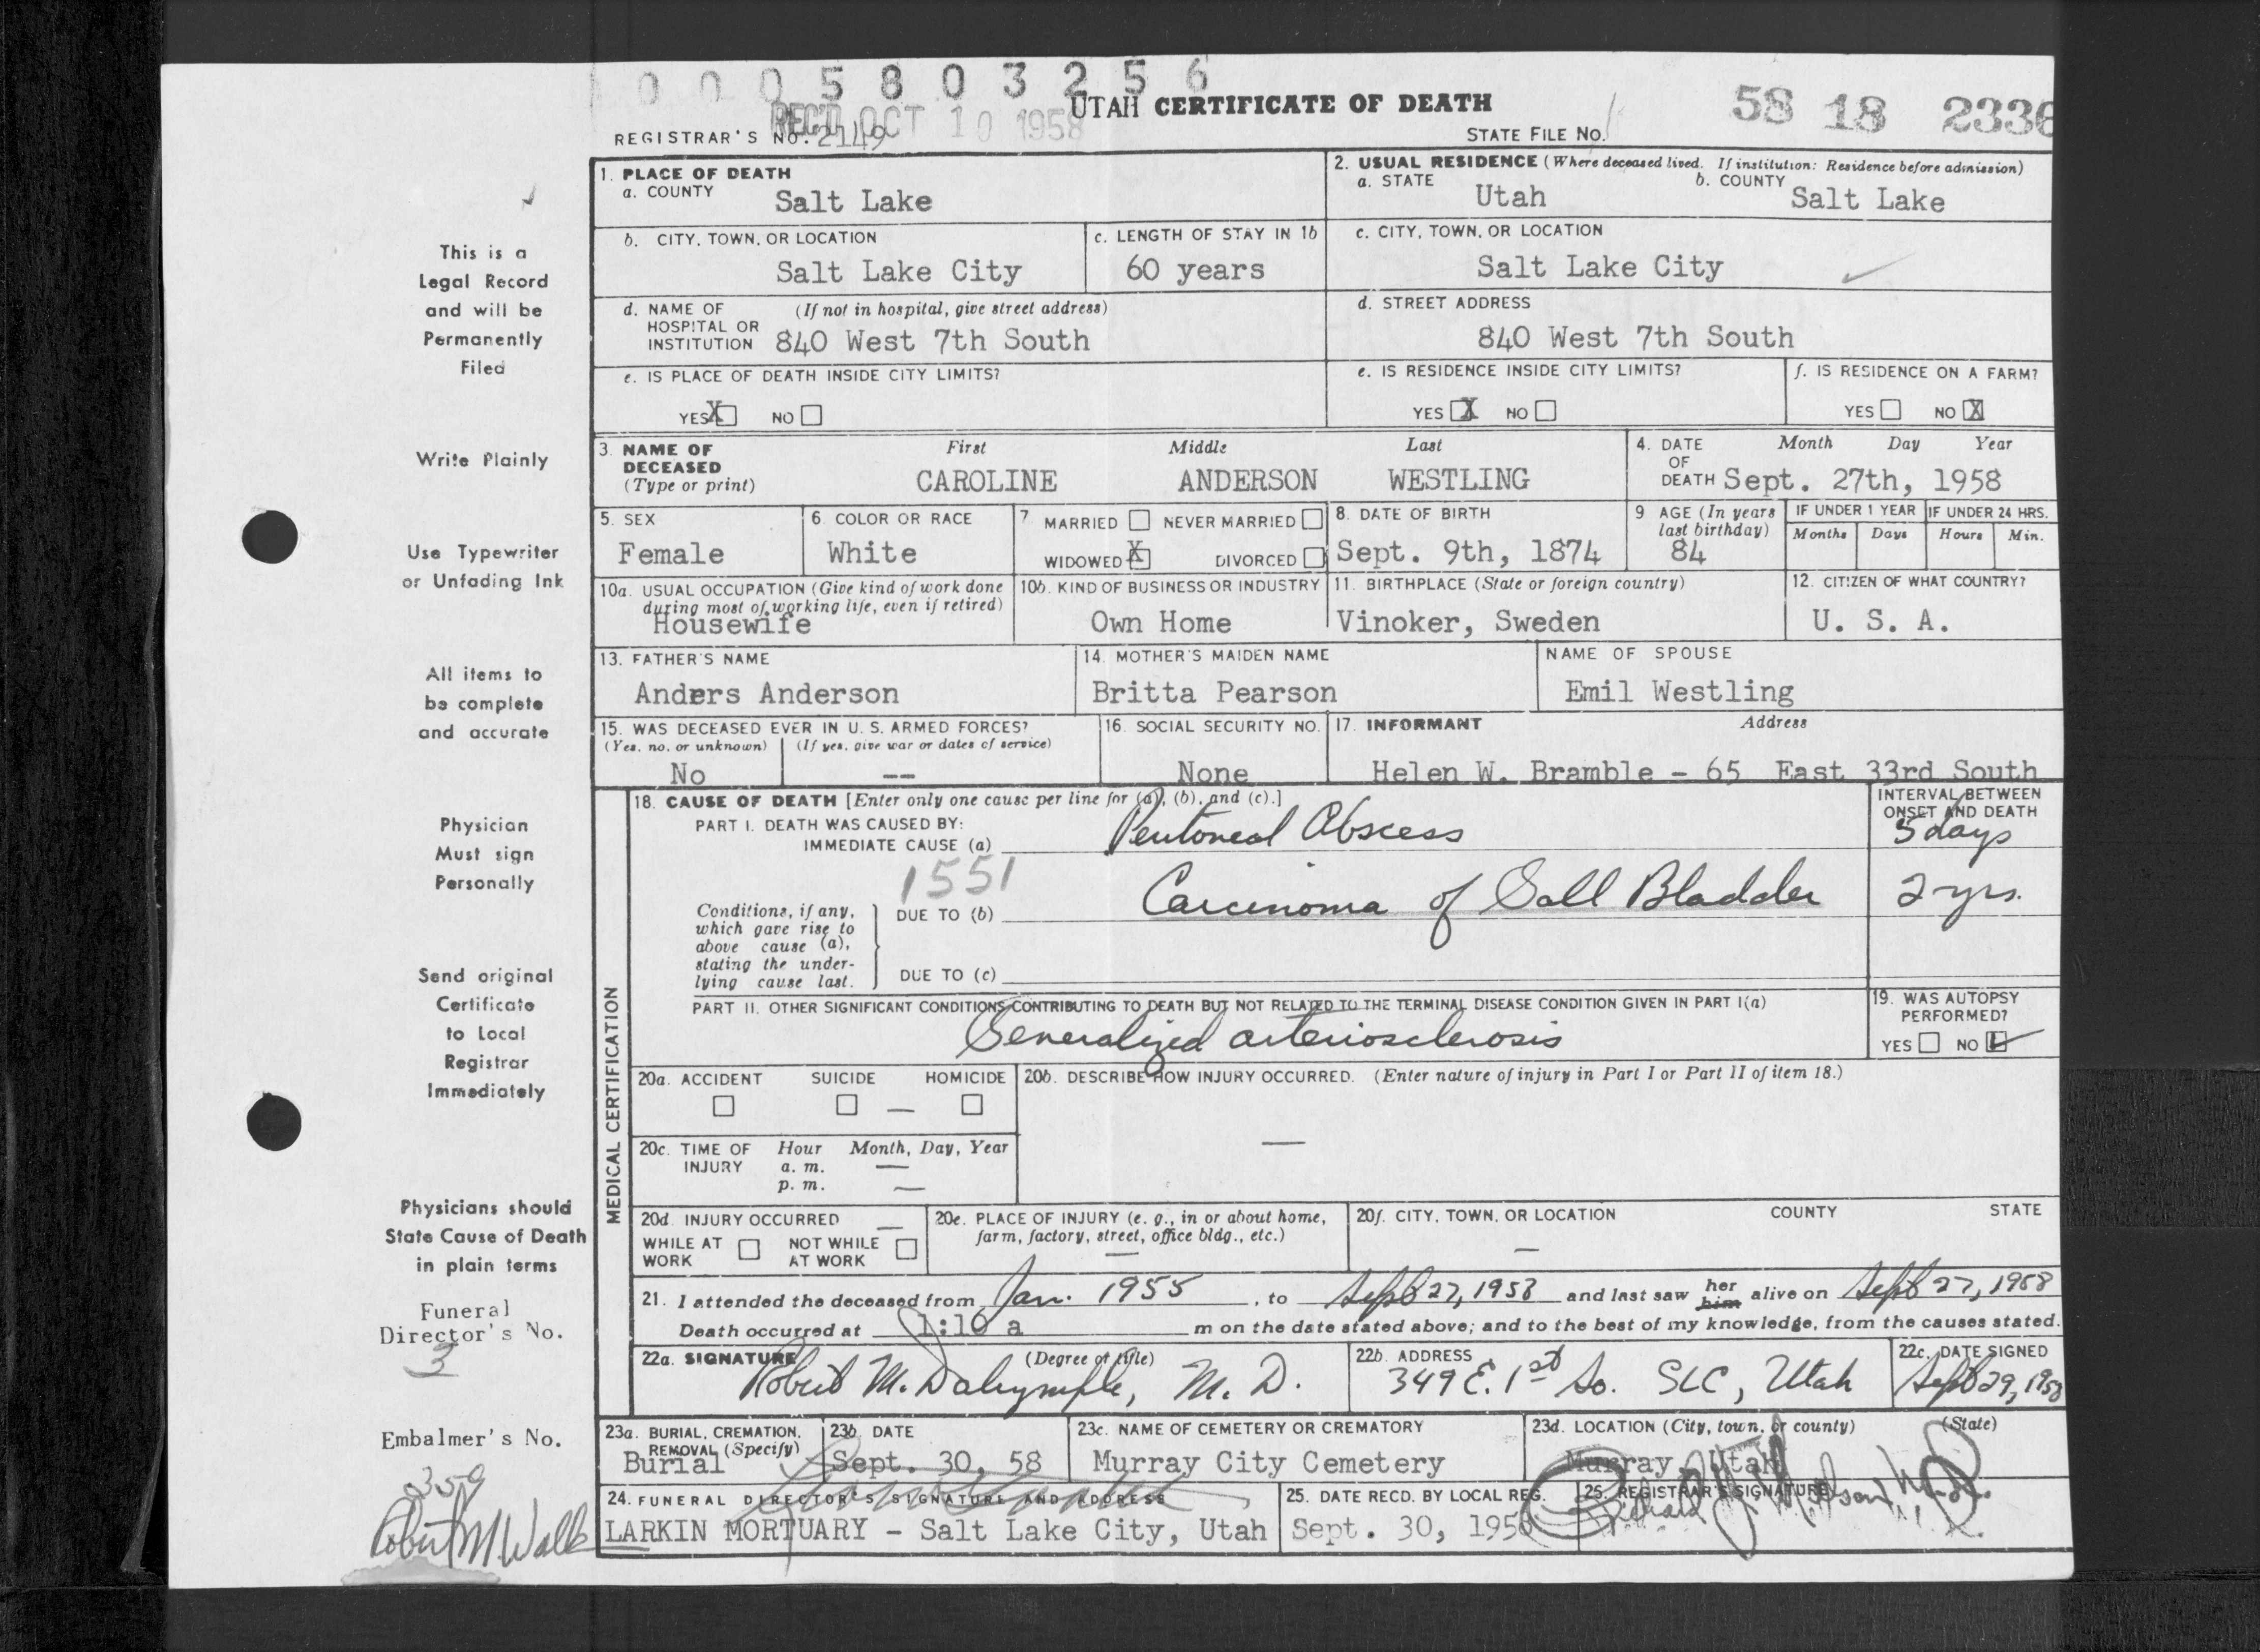 0 0 0 5 8 0 3 2 5 6
REC'D OCT 10 1958
UTAH CERTIFICATE OF DEATH
58 18 2336
REGISTRAR'S NO. 2149
STATE FILE NO.
1. PLACE OF DEATH
a. COUNTY Salt Lake
2. USUAL RESIDENCE (Where deceased lived. If institution: Residence before admission)
a. STATE Utah b. COUNTY Salt Lake
b. CITY, TOWN, OR LOCATION
Salt Lake City
c. LENGTH OF STAY IN 1b
60 years
c. CITY, TOWN, OR LOCATION
Salt Lake City
d. NAME OF HOSPITAL OR INSTITUTION (If not in hospital, give street address)
840 West 7th South
d. STREET ADDRESS
840 West 7th South
e. IS PLACE OF DEATH INSIDE CITY LIMITS?
YES X NO
e. IS RESIDENCE INSIDE CITY LIMITS?
YES X NO
f. IS RESIDENCE ON A FARM?
YES NO X
3. NAME OF DECEASED (Type or print)
First Middle Last
CAROLINE ANDERSON WESTLING
4. DATE OF DEATH Month Day Year
Sept. 27th, 1958
5. SEX
Female
6. COLOR OR RACE
White
7 MARRIED NEVER MARRIED
WIDOWED X DIVORCED
8. DATE OF BIRTH
Sept. 9th, 1874
9 AGE (In years last birthday)
84
IF UNDER 1 YEAR IF UNDER 24 HRS.
Months Days Hours Min.
10a. USUAL OCCUPATION (Give kind of work done during most of working life, even if retired)
Housewife
10b. KIND OF BUSINESS OR INDUSTRY
Own Home
11. BIRTHPLACE (State or foreign country)
Vinoker, Sweden
12. CITIZEN OF WHAT COUNTRY?
U. S. A.
13. FATHER'S NAME
Anders Anderson
14. MOTHER'S MAIDEN NAME
Britta Pearson
NAME OF SPOUSE
Emil Westling
15. WAS DECEASED EVER IN U. S. ARMED FORCES?
(Yes, no, or unknown) (If yes, give war or dates of service)
No --
16. SOCIAL SECURITY NO.
None
17. INFORMANT Address
Helen W. Bramble - 65 East 33rd South
MEDICAL CERTIFICATION
18. CAUSE OF DEATH [Enter only one cause per line for (a), (b), and (c).]
INTERVAL BETWEEN ONSET AND DEATH
PART I. DEATH WAS CAUSED BY:
IMMEDIATE CAUSE (a) Peritoneal Abscess 5 days
1551
Conditions, if any, which gave rise to above cause (a), stating the underlying cause last.
DUE TO (b) Carcinoma of Gall Bladder 2 yrs.
DUE TO (c)
PART II. OTHER SIGNIFICANT CONDITIONS CONTRIBUTING TO DEATH BUT NOT RELATED TO THE TERMINAL DISEASE CONDITION GIVEN IN PART I(a)
Generalized arteriosclerosis
19. WAS AUTOPSY PERFORMED?
YES NO
20a. ACCIDENT SUICIDE HOMICIDE
—
20b. DESCRIBE HOW INJURY OCCURRED. (Enter nature of injury in Part I or Part II of item 18.)
—
20c. TIME OF INJURY Hour Month, Day, Year
a. m. —
p. m. —
20d. INJURY OCCURRED —
WHILE AT WORK NOT WHILE AT WORK
20e. PLACE OF INJURY (e. g., in or about home, farm, factory, street, office bldg., etc.)
—
20f. CITY, TOWN, OR LOCATION COUNTY STATE
—
21. I attended the deceased from Jan. 1955, to Sept 27, 1958 and last saw her him alive on Sept 27, 1958
Death occurred at 1:10 a m on the date stated above; and to the best of my knowledge, from the causes stated.
22a. SIGNATURE (Degree or title)
Robert M. Dalrymple, M. D.
22b. ADDRESS
349 E. 1st So. SLC, Utah
22c. DATE SIGNED
Sept 29, 1958
23a. BURIAL, CREMATION, REMOVAL (Specify)
Burial
23b. DATE
Sept. 30, 58
23c. NAME OF CEMETERY OR CREMATORY
Murray City Cemetery
23d. LOCATION (City, town, or county) (State)
Murray, Utah
24. FUNERAL DIRECTOR'S SIGNATURE AND ADDRESS
LARKIN MORTUARY - Salt Lake City, Utah
25. DATE RECD. BY LOCAL REG.
Sept. 30, 1958
25. REGISTRAR'S SIGNATURE
This is a
Legal Record
and will be
Permanently
Filed
Write Plainly
Use Typewriter
or Unfading Ink
All items to
be complete
and accurate
Physician
Must sign
Personally
Send original
Certificate
to Local
Registrar
Immediately
Physicians should
State Cause of Death
in plain terms
Funeral
Director's No.
3
Embalmer's No.
359
Robert M Walk